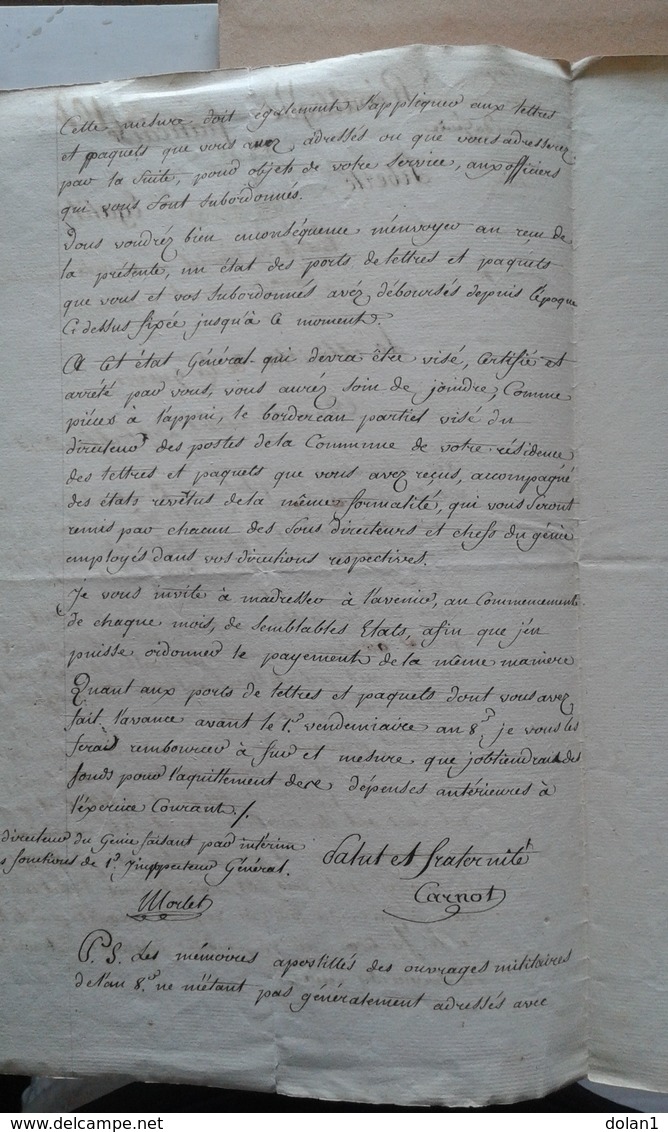 Cette mesure doit également s'appliquer aux lettres
et paquets que vous avez adressés ou que vous adresserez
par la suite, pour objets de votre service, aux officiers
qui vous sont subordonnés.
Vous voudréz bien enconséquence m'envoyer au reçu de
la présente, un état des ports de lettres et paquets
que vous et vos subordonnés avéz déboursés depuis l'époque
Ci dessus fixée jusqu'à ce moment.
A Cet état général qui devra être visé, Certifié et
arrêté par vous, vous auréz soin de joindre, Comme
piéces à l'appui, le bordereau partiel visé du
directeur des postes dela Commune de votre résidence
des lettres et paquets que vous avez reçus, accompagné
des états revêtus dela même formalité, qui vous seront
remis par chacun des Sous directeurs et chefs du génie
employés dans vos directions respectives.
Je vous invite à madresser à l'avenir, au Commencement
de chaque mois, de semblables Etats, afin que j'en
puisse ordonner le payement dela même maniere
Quant aux ports de lettres et paquets dont vous avez
fait l'avance avant le 1.er vendemiaire an 8, je vous les
ferai rembourcer à fur et mesure que j'obtiendrai des
fonds pour l'aquittement de ce dépenses antérieures à
l'éxercice Courant./.
directeur du Genie faisant par interim
s fonctions de 1.er Inspecteur Général.
Morlet
Salut et fraternité
Carnot
P.S. Les mémoires apostillés des ouvrages militaires
de l'an 8. ne m'étant pas généralement adressés avec
dolan1